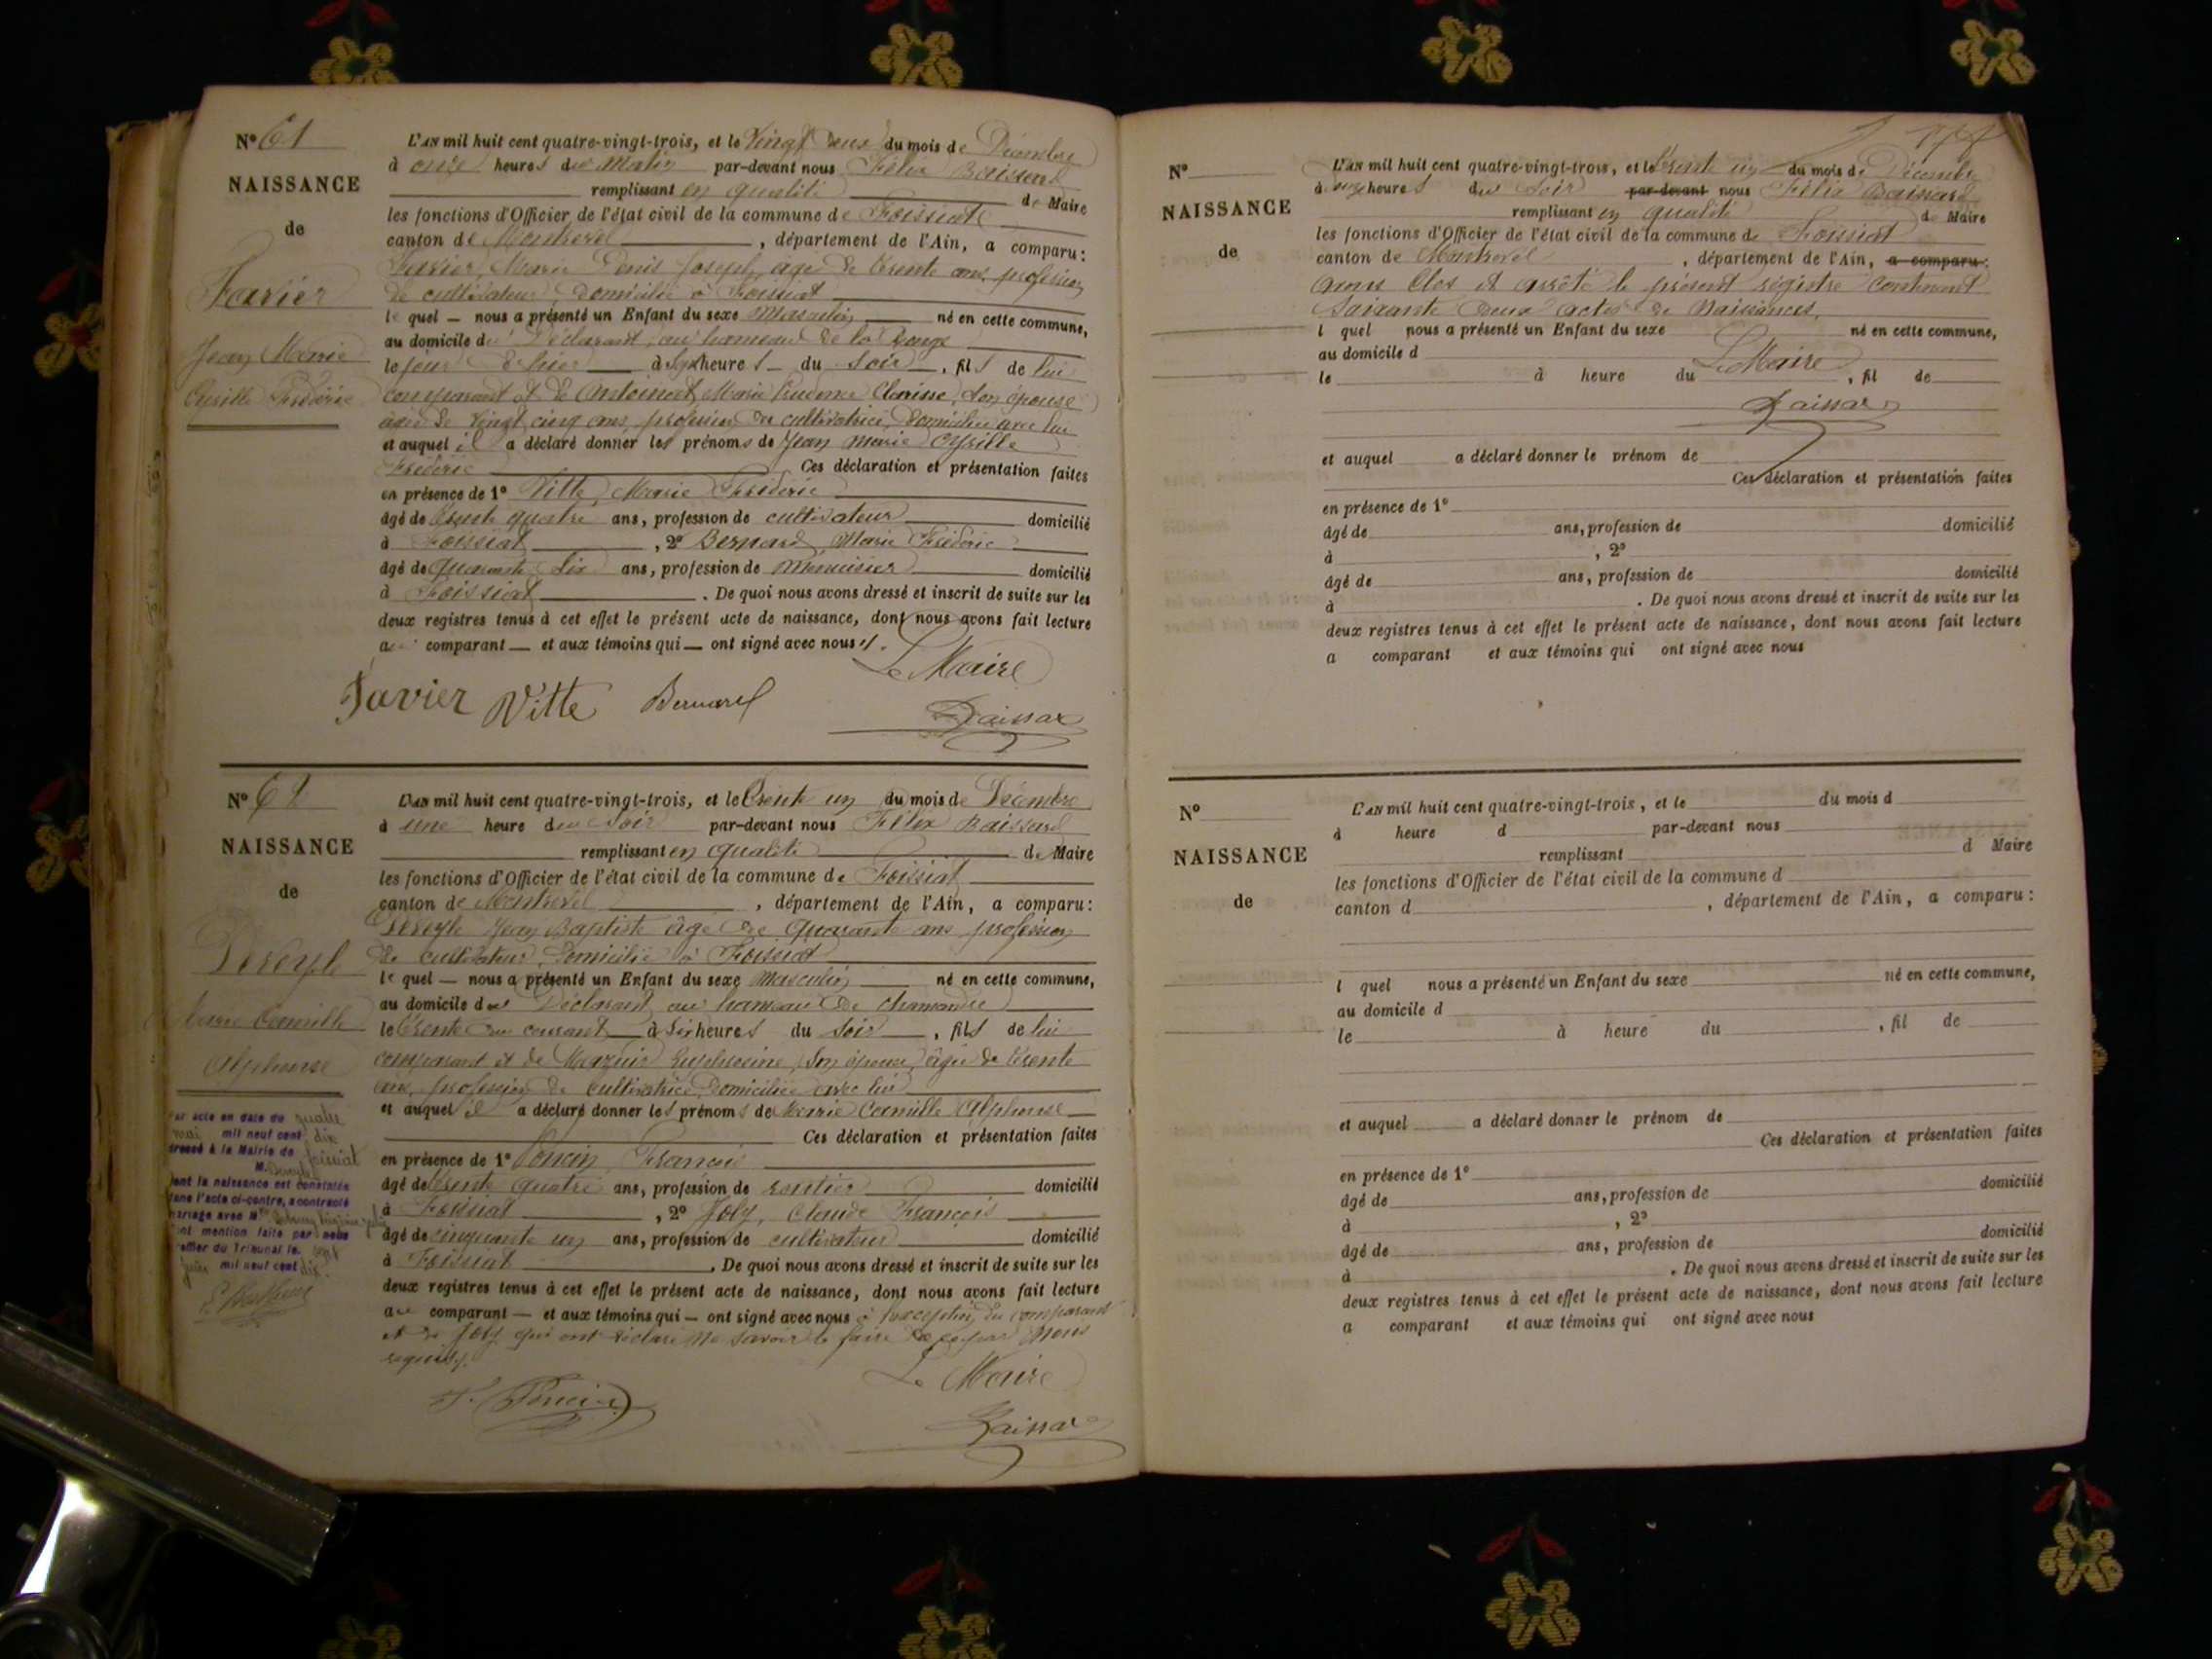 N° 61
NAISSANCE
de
Favier
Jean Marie
Cyrille Frédéric
L'AN mil huit cent quatre-vingt-trois, et le Vingt deux du mois de Décembre
à onze heures du Matin par-devant nous Félix Baissard
remplissant en qualité de Maire
les fonctions d'Officier de l'état civil de la commune de Foissiat
canton de Montrevel, département de l'Ain, a comparu:
Favier, Marie Denis Joseph, âgé de trente ans, profession
de cultivateur, domicilié à Foissiat
le quel — nous a présenté un Enfant du sexe Masculin né en cette commune,
au domicile du Déclarant, au hameau de la
le jour d'hier à heures du soir, fils de lui
comparant et de Antoinet, Marie Prudence Clarisse, son épouse
âgée de vingt cinq ans, profession de cultivatrice, domiciliée avec lui
et auquel il a déclaré donner les prénoms de Jean Marie Cyrille
Frédéric Ces déclaration et présentation faites
en présence de 1° Vitte, Marie Frédéric
âgé de trente quatre ans, profession de cultivateur domicilié
à Foissiat, 2° Bernard, Marie Frédéric
âgé de quarante six ans, profession de Menuisier domicilié
à Foissiat. De quoi nous avons dressé et inscrit de suite sur les
deux registres tenus à cet effet le présent acte de naissance, dont nous avons fait lecture
au comparant — et aux témoins qui — ont signé avec nous.
Le Maire
Favier Vitte Bernard
Baissard
N° 62
NAISSANCE
de
Deveyle
Marie Camille
Alphonse
L'AN mil huit cent quatre-vingt-trois, et le trente un du mois de Décembre
à une heure du soir par-devant nous Félix Baissard
remplissant en qualité de Maire
les fonctions d'Officier de l'état civil de la commune de Foissiat
canton de Montrevel, département de l'Ain, a comparu:
Deveyle Jean Baptiste âgé de quarante ans profession
de cultivateur, domicilié à Foissiat
le quel — nous a présenté un Enfant du sexe Masculin né en cette commune,
au domicile du Déclarant, au hameau de Chamandre
le trente du courant à six heures du soir, fils de lui
comparant et de Euphrosine, son épouse, âgée de trente
ans, profession de cultivatrice, domiciliée avec lui
et auquel il a déclaré donner les prénoms de Marie Camille Alphonse
Ces déclaration et présentation faites
en présence de 1° Poncin, François
âgé de trente quatre ans, profession de rentier domicilié
à Foissiat, 2° Joly, Claude François
âgé de cinquante un ans, profession de cultivateur domicilié
à Foissiat. De quoi nous avons dressé et inscrit de suite sur les
deux registres tenus à cet effet le présent acte de naissance, dont nous avons fait lecture
au comparant — et aux témoins qui — ont signé avec nous à l'exception du comparant
et de Joly qui ont déclaré ne savoir le faire de ce par nous
requis.
Le Maire
F. Poncin
Baissard
Par acte en date du quatre
mai mil neuf cent dix
dressé à la Mairie de Foissiat
M. Deveyle
dont la naissance est constatée
dans l'acte ci-contre, a contracté
mariage avec Mlle
dont mention faite par nous
greffier du Tribunal le sept
juin mil neuf cent dix.
N°
NAISSANCE
de
L'AN mil huit cent quatre-vingt-trois, et le trente un du mois de Décembre
à heures du soir par-devant nous Félix Baissard
remplissant en qualité de Maire
les fonctions d'Officier de l'état civil de la commune de Foissiat
canton de Montrevel, département de l'Ain, a comparu:
avons clos et arrêté le présent registre contenant
soixante deux actes de Naissances.
l quel nous a présenté un Enfant du sexe né en cette commune,
au domicile d
Le Maire
le à heure du , fil de
Baissard
et auquel a déclaré donner le prénom de
Ces déclaration et présentation faites
en présence de 1°
âgé de ans, profession de domicilié
à , 2°
âgé de ans, profession de domicilié
à . De quoi nous avons dressé et inscrit de suite sur les
deux registres tenus à cet effet le présent acte de naissance, dont nous avons fait lecture
a comparant et aux témoins qui ont signé avec nous
N°
NAISSANCE
de
L'AN mil huit cent quatre-vingt-trois, et le du mois d
à heure d par-devant nous
remplissant d Maire
les fonctions d'Officier de l'état civil de la commune d
canton d , département de l'Ain, a comparu:
l quel nous a présenté un Enfant du sexe né en cette commune,
au domicile d
le à heure du , fil de
et auquel a déclaré donner le prénom de
Ces déclaration et présentation faites
en présence de 1°
âgé de ans, profession de domicilié
à , 2°
âgé de ans, profession de domicilié
à . De quoi nous avons dressé et inscrit de suite sur les
deux registres tenus à cet effet le présent acte de naissance, dont nous avons fait lecture
a comparant et aux témoins qui ont signé avec nous